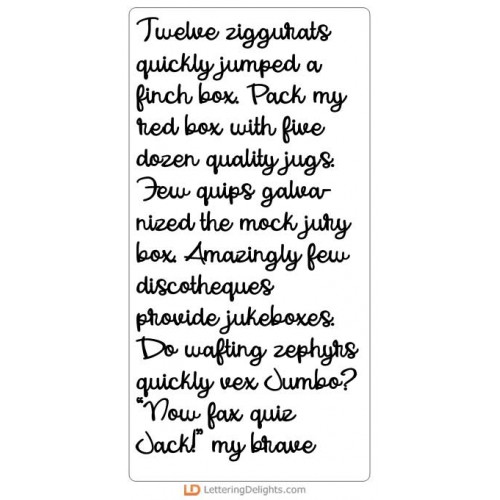 Twelve ziggurats
quickly jumped a
finch box. Pack my
red box with five
dozen quality jugs.
Few quips galva-
nized the mock jury
box. Amazingly few
discotheques
provide jukeboxes.
Do wafting zephyrs
quickly vex Jumbo?
“Now fax quiz
Jack!” my brave
LD LetteringDelights.com